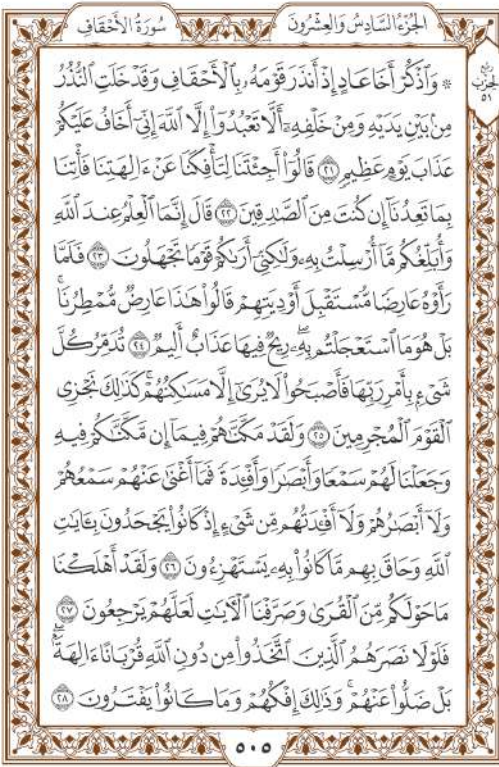 الجُزْءُ السَّادِسُ وَالعِشْرُونَ سُورَةُ الأَحْقَافِ
۞ وَٱذْكُرْ أَخَا عَادٍ إِذْ أَنذَرَ قَوْمَهُۥ بِٱلْأَحْقَافِ وَقَدْ خَلَتِ ٱلنُّذُرُ
مِنۢ بَيْنِ يَدَيْهِ وَمِنْ خَلْفِهِۦٓ أَلَّا تَعْبُدُوٓا۟ إِلَّا ٱللَّهَ إِنِّىٓ أَخَافُ عَلَيْكُمْ
عَذَابَ يَوْمٍ عَظِيمٍ ٢١ قَالُوٓا۟ أَجِئْتَنَا لِتَأْفِكَنَا عَنْ ءَالِهَتِنَا فَأْتِنَا
بِمَا تَعِدُنَآ إِن كُنتَ مِنَ ٱلصَّٰدِقِينَ ٢٢ قَالَ إِنَّمَا ٱلْعِلْمُ عِندَ ٱللَّهِ
وَأُبَلِّغُكُم مَّآ أُرْسِلْتُ بِهِۦ وَلَٰكِنِّىٓ أَرَىٰكُمْ قَوْمًا تَجْهَلُونَ ٢٣ فَلَمَّا
رَأَوْهُ عَارِضًا مُّسْتَقْبِلَ أَوْدِيَتِهِمْ قَالُوا۟ هَٰذَا عَارِضٌ مُّمْطِرُنَا ۚ
بَلْ هُوَ مَا ٱسْتَعْجَلْتُم بِهِۦ ۖ رِيحٌ فِيهَا عَذَابٌ أَلِيمٌ ٢٤ تُدَمِّرُ كُلَّ
شَىْءٍۭ بِأَمْرِ رَبِّهَا فَأَصْبَحُوا۟ لَا يُرَىٰٓ إِلَّا مَسَٰكِنُهُمْ ۚ كَذَٰلِكَ نَجْزِى
ٱلْقَوْمَ ٱلْمُجْرِمِينَ ٢٥ وَلَقَدْ مَكَّنَّٰهُمْ فِيمَآ إِن مَّكَّنَّٰكُمْ فِيهِ
وَجَعَلْنَا لَهُمْ سَمْعًا وَأَبْصَٰرًا وَأَفْـِٔدَةً فَمَآ أَغْنَىٰ عَنْهُمْ سَمْعُهُمْ
وَلَآ أَبْصَٰرُهُمْ وَلَآ أَفْـِٔدَتُهُم مِّن شَىْءٍ إِذْ كَانُوا۟ يَجْحَدُونَ بِـَٔايَٰتِ
ٱللَّهِ وَحَاقَ بِهِم مَّا كَانُوا۟ بِهِۦ يَسْتَهْزِءُونَ ٢٦ وَلَقَدْ أَهْلَكْنَا
مَا حَوْلَكُم مِّنَ ٱلْقُرَىٰ وَصَرَّفْنَا ٱلْءَايَٰتِ لَعَلَّهُمْ يَرْجِعُونَ ٢٧
فَلَوْلَا نَصَرَهُمُ ٱلَّذِينَ ٱتَّخَذُوا۟ مِن دُونِ ٱللَّهِ قُرْبَانًا ءَالِهَةًۢ ۖ
بَلْ ضَلُّوا۟ عَنْهُمْ ۚ وَذَٰلِكَ إِفْكُهُمْ وَمَا كَانُوا۟ يَفْتَرُونَ ٢٨
ربع
الحزب
٥١
٥٠٥